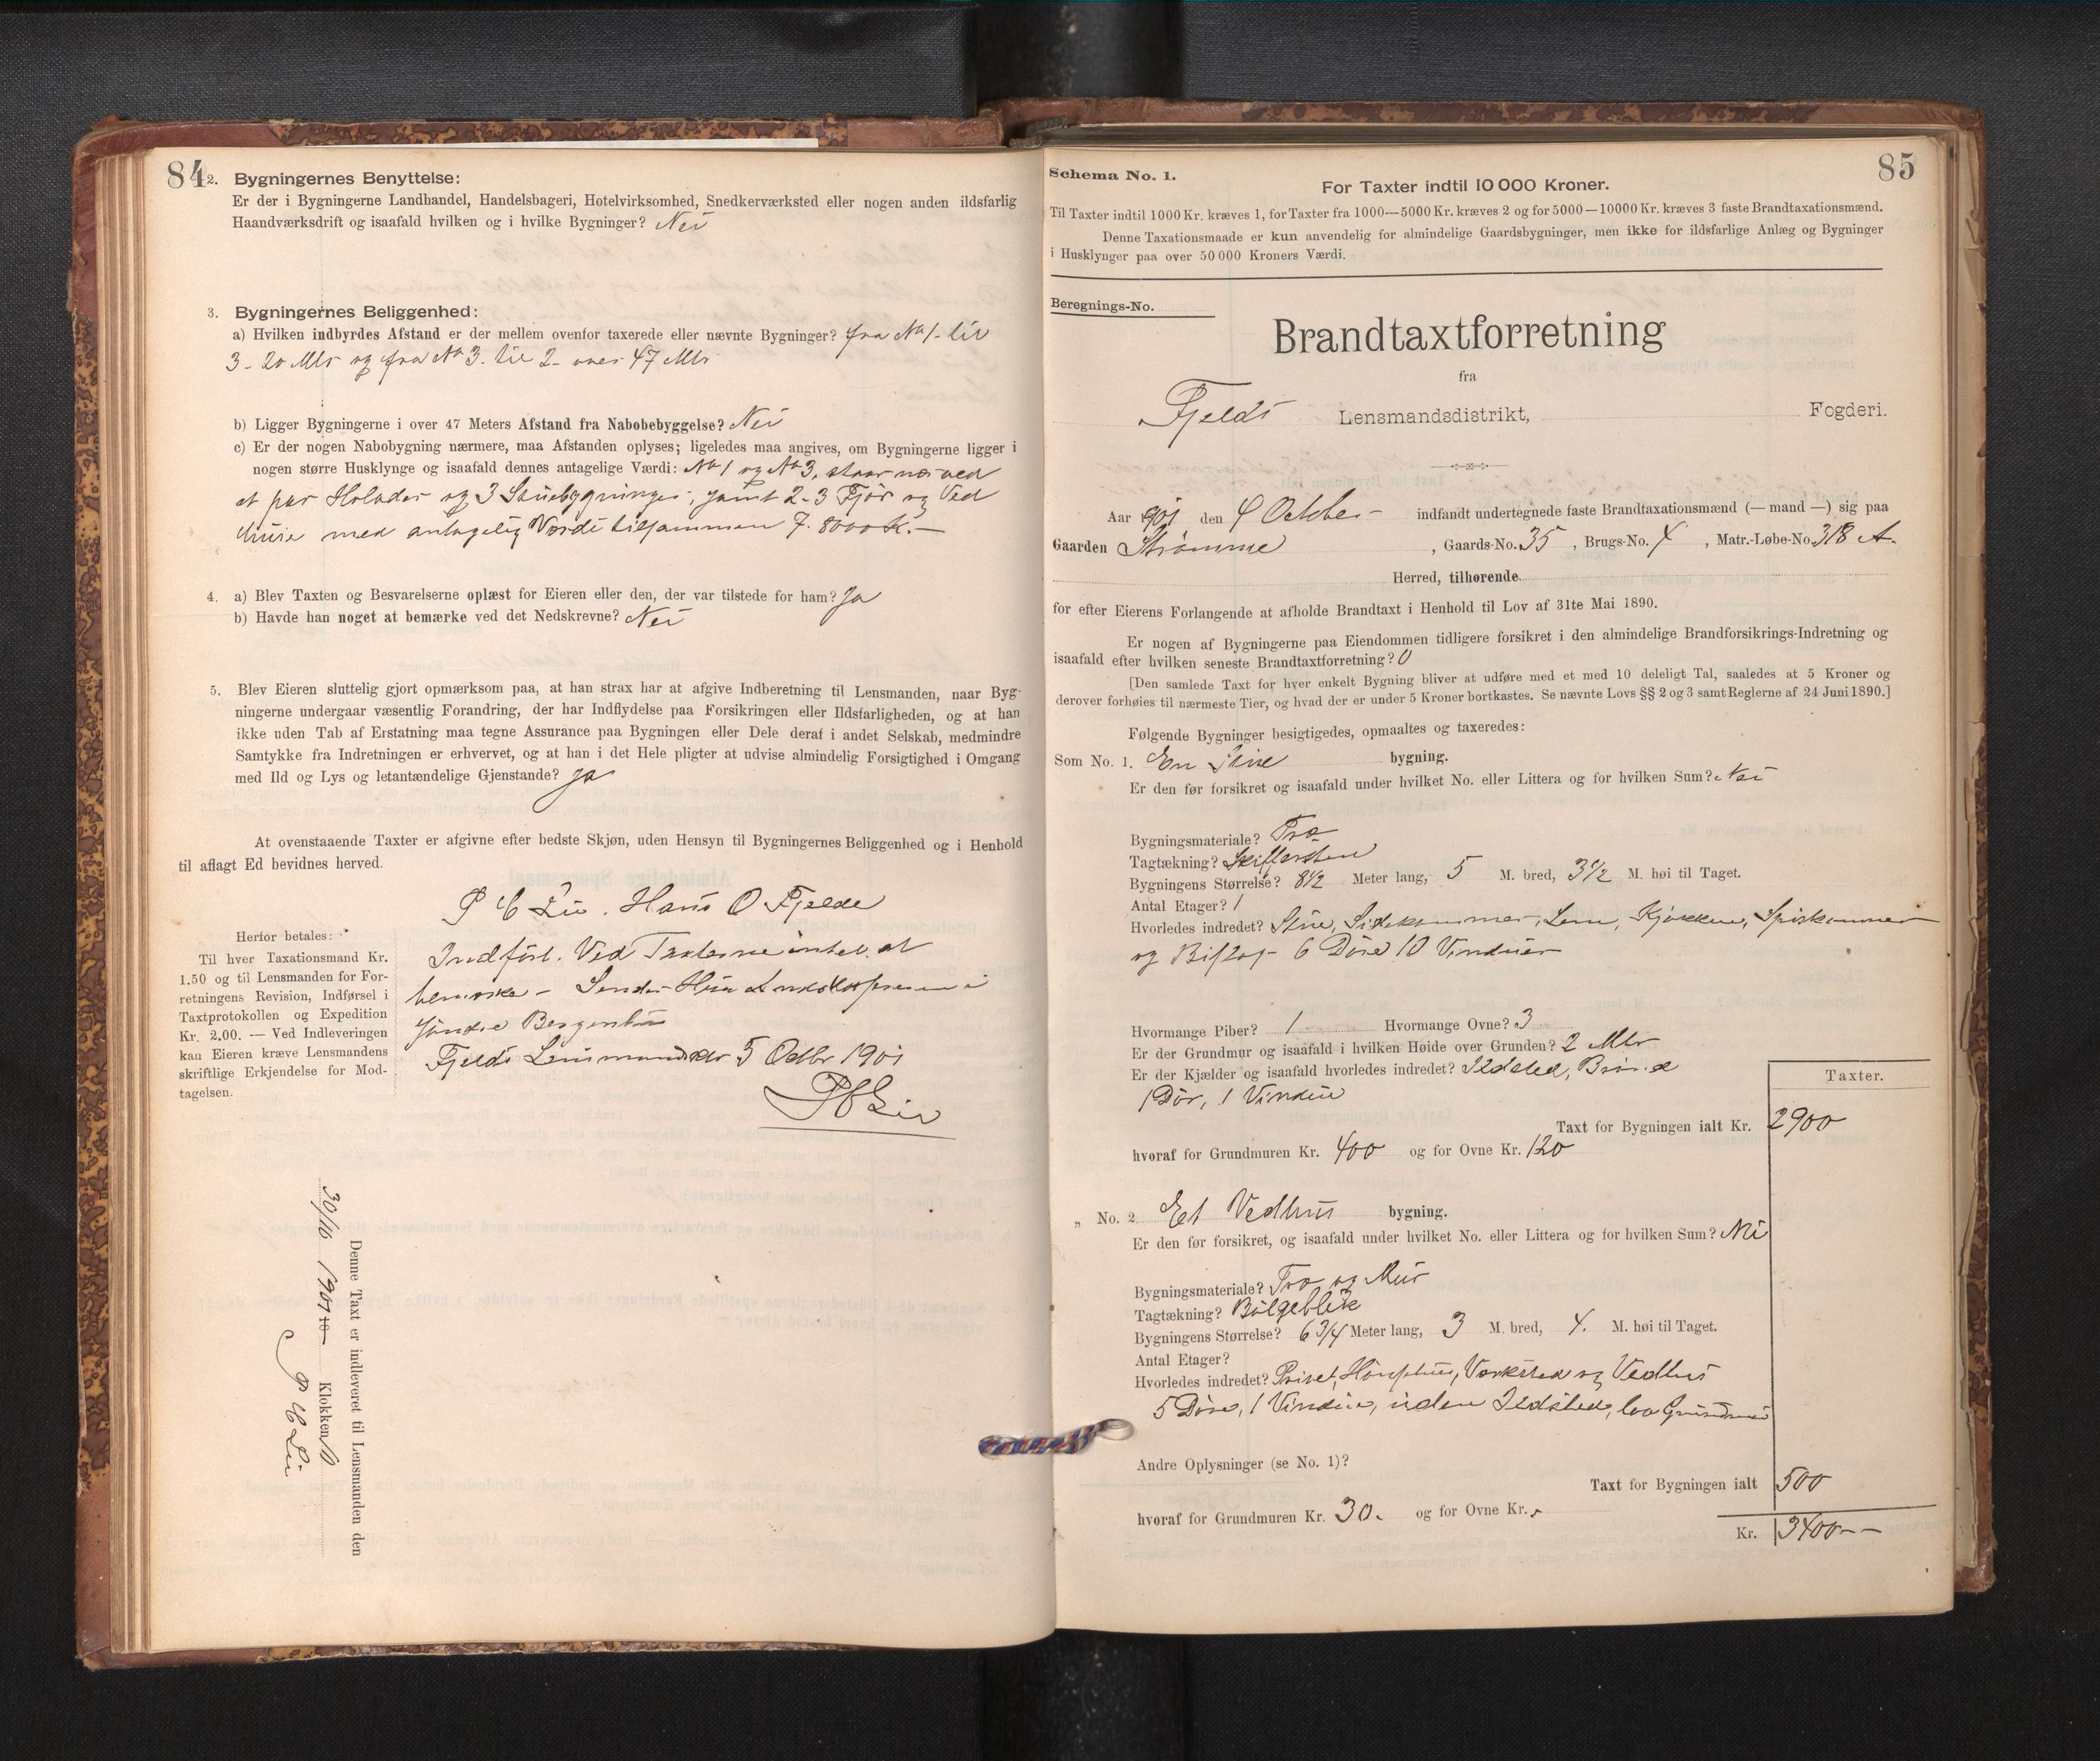 84
2. Bygningernes Benyttelse:
Er der i Bygningerne Landhandel, Handelsbageri, Hotelvirksomhed, Snedkerværksted eller nogen anden ildsfarlig
Haandværksdrift og isaafald hvilken og i hvilke Bygninger? Nei
3. Bygningernes Beliggenhed:
a) Hvilken indbyrdes Afstand er der mellem ovenfor taxerede eller nævnte Bygninger? fra No 1 - til
3 - 20 Mtr og fra No 3. til 2 - over 47 Mtr
b) Ligger Bygningerne i over 47 Meters Afstand fra Nabobebyggelse? Nei
c) Er der nogen Nabobygning nærmere, maa Afstanden oplyses; ligeledes maa angives, om Bygningerne ligger i
nogen større Husklynge og isaafald dennes antagelige Værdi: No 1 og No 3, staar nær ved
et par Holader og 3 Stuebygninger, samt 2-3 Fjør og Ved
huse med antagelig Værdi tilsammen 7-8000 K. —
4. a) Blev Taxten og Besvarelserne oplæst for Eieren eller den, der var tilstede for ham? Ja
b) Havde han noget at bemærke ved det Nedskrevne? Nei
5. Blev Eieren sluttelig gjort opmærksom paa, at han strax har at afgive Indberetning til Lensmanden, naar Byg-
ningerne undergaar væsentlig Forandring, der har Indflydelse paa Forsikringen eller Ildsfarligheden, og at han
ikke uden Tab af Erstatning maa tegne Assurance paa Bygningen eller Dele deraf i andet Selskab, medmindre
Samtykke fra Indretningen er erhvervet, og at han i det Hele pligter at udvise almindelig Forsigtighed i Omgang
med Ild og Lys og letantændelige Gjenstande? Ja
At ovenstaaende Taxter er afgivne efter bedste Skjøn, uden Hensyn til Bygningernes Beliggenhed og i Henhold
til aflagt Ed bevidnes herved.
P C Lie. Hans O Fjelde
Indført. Ved Taxterne intet at
bemærke - Sendes Hr
Søndre Bergenhus
Fjelds Lensmandsktr 5 Octbr 1901
P C Lie
Herfor betales:
Til hver Taxationsmand Kr.
1.50 og til Lensmanden for For-
retningens Revision, Indførsel i
Taxtprotokollen og Expedition
Kr. 2.00. — Ved Indleveringen
kan Eieren kræve Lensmandens
skriftlige Erkjendelse for Mod-
tagelsen.
Denne Taxt er indleveret til Lensmanden den
30/10 1901 18 Klokken
P C Lie
85
Schema No. 1.
For Taxter indtil 10 000 Kroner.
Til Taxter indtil 1000 Kr. kræves 1, for Taxter fra 1000—5000 Kr. kræves 2 og for 5000—10000 Kr. kræves 3 faste Brandtaxationsmænd.
Denne Taxationsmaade er kun anvendelig for almindelige Gaardsbygninger, men ikke for ildsfarlige Anlæg og Bygninger
i Husklynger paa over 50 000 Kroners Værdi.
Beregnings-No.
Brandtaxtforretning
fra
Fjelds Lensmandsdistrikt, Fogderi.
Aar 901 den 4 October indfandt undertegnede faste Brandtaxationsmænd (— mand —) sig paa
Gaarden Strømme, Gaards-No. 35, Brugs-No. 4, Matr.-Løbe-No. 318 A.
Herred, tilhørende
for efter Eierens Forlangende at afholde Brandtaxt i Henhold til Lov af 31te Mai 1890.
Er nogen af Bygningerne paa Eiendommen tidligere forsikret i den almindelige Brandforsikrings-Indretning og
isaafald efter hvilken seneste Brandtaxtforretning? 0
[Den samlede Taxt for hver enkelt Bygning bliver at udføre med et med 10 deleligt Tal, saaledes at 5 Kroner og
derover forhøies til nærmeste Tier, og hvad der er under 5 Kroner bortkastes. Se nævnte Lovs §§ 2 og 3 samt Reglerne af 24 Juni 1890.]
Følgende Bygninger besigtigedes, opmaaltes og taxeredes:
Som No. 1. En Stue bygning.
Er den før forsikret og isaafald under hvilket No. eller Littera og for hvilken Sum? Nei
Bygningsmateriale? Træ
Tagtækning? Skiffersten
Bygningens Størrelse? 8½ Meter lang, 5 M. bred, 3½ M. høi til Taget.
Antal Etager? 1
Hvorledes indredet? Stue, Sidekammer, Lem, Kjøkken, Spiskammer
og Bislag - 6 Døre 10 Vinduer
Hvormange Piber? 1 Hvormange Ovne? 3
Er der Grundmur og isaafald i hvilken Høide over Grunden? 2 Mtr
Er der Kjælder og isaafald hvorledes indredet? Ildsted, Brønd
1 Dør, 1 Vindue
Taxter.
Taxt for Bygningen ialt Kr. 2900
hvoraf for Grundmuren Kr. 400 og for Ovne Kr. 120
„ No. 2. Et Vedhus bygning.
Er den før forsikret, og isaafald under hvilket No. eller Littera og for hvilken Sum? Nei
Bygningsmateriale? Træ og Mur
Tagtækning? Bølgeblik
Bygningens Størrelse? 6 3/4 Meter lang, 3 M. bred, 4. M. høi til Taget.
Antal Etager?
Hvorledes indredet? Privet, Hønsehus, Værksted og Vedhus
5 Døre, 1 Vindue, uden Ildsted, lav Grundmur
Andre Oplysninger (se No. 1)?
Taxt for Bygningen ialt 500
hvoraf for Grundmuren Kr. 30. og for Ovne Kr.
Kr. 3400 --